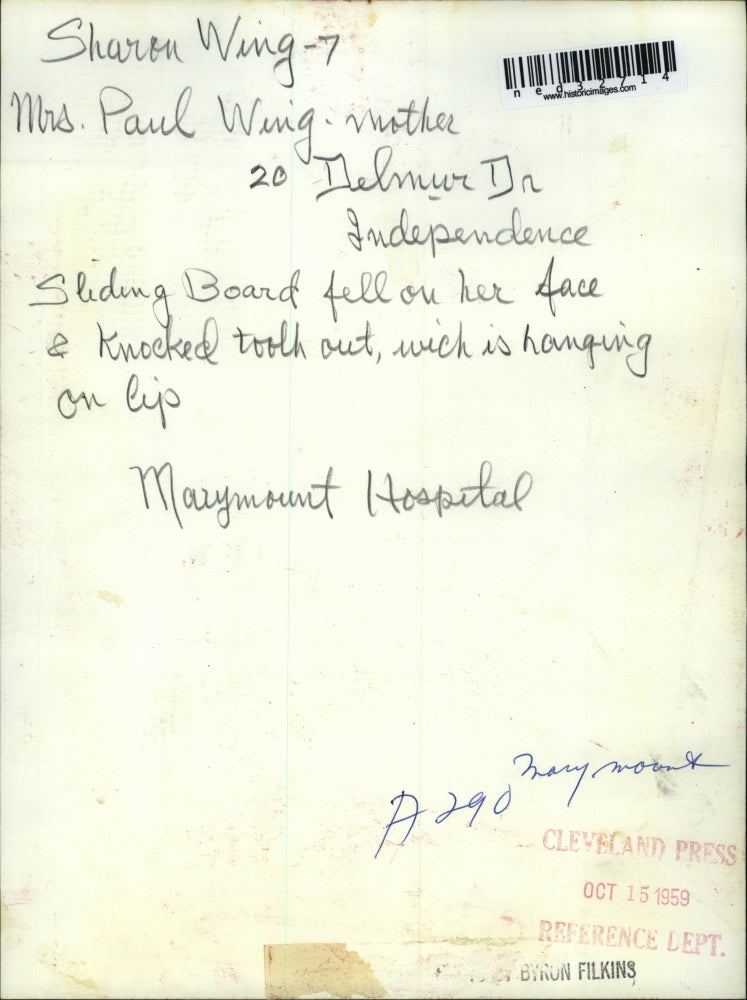 Sharon Wing - 7
ned32714
www.historicimages.com
Mrs. Paul Wing - mother
20 Delmur Dr
Independence
Sliding Board fell on her face
& Knocked tooth out, wich is hanging
on lip
Marymount Hospital
Marymount
A 290
CLEVELAND PRESS
OCT 15 1959
REFERENCE DEPT.
BYRON FILKINS